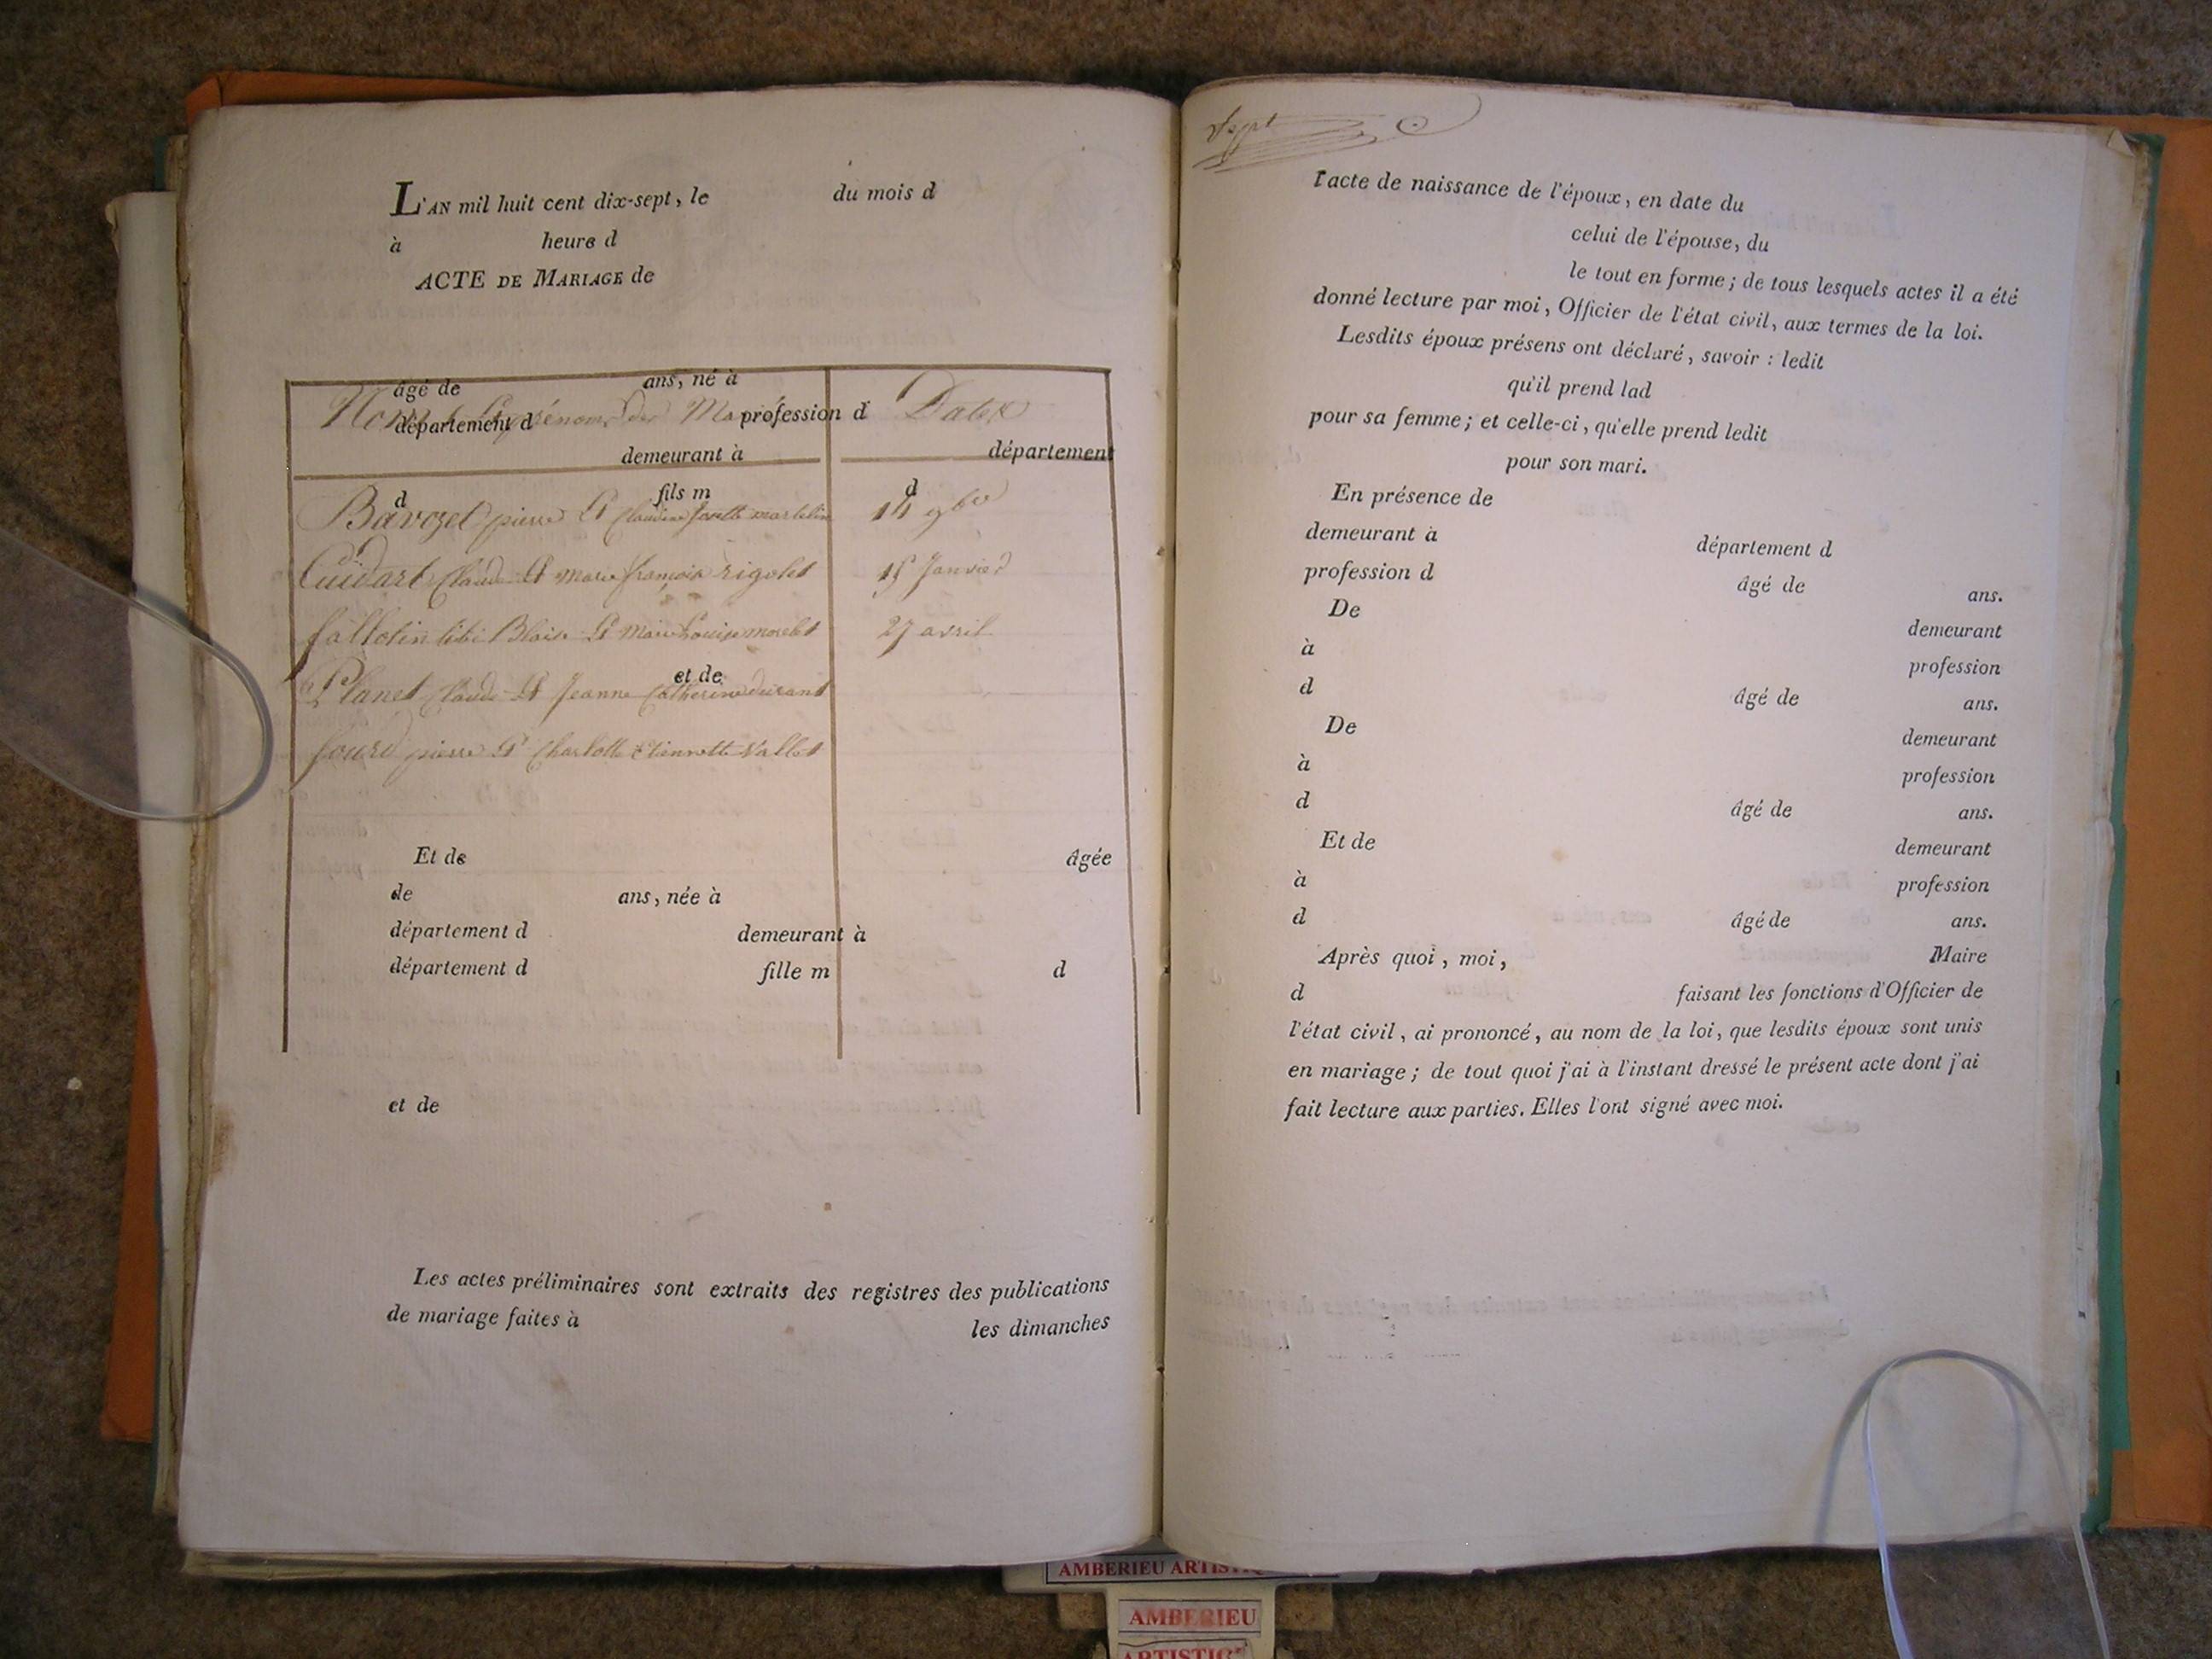 L'AN mil huit cent dix-sept, le du mois d
à heure d
ACTE DE MARIAGE de
âgé de ans, né à
Noms Et prénoms des Mariés Dates
département d profession d
demeurant à département
d fils m d
Bavozet pierre Et Claudine Martelin 14 9bre
Cuidart Claude Et Marie françoise rigolet 15 Janvier
fallotin Blaise Et Marie Louise morelet 27 avril
et de
Planet Claude Et Jeanne Catherine durant
pierre Et Charlotte Etiennette Vallet
Et de âgée
de ans, née à
département d demeurant à
département d fille m d
et de
Les actes préliminaires sont extraits des registres des publications
de mariage faites à les dimanches
l'acte de naissance de l'époux, en date du
celui de l'épouse, du
le tout en forme ; de tous lesquels actes il a été
donné lecture par moi, Officier de l'état civil, aux termes de la loi.
Lesdits époux présens ont déclaré, savoir : ledit
qu'il prend lad
pour sa femme ; et celle-ci, qu'elle prend ledit
pour son mari.
En présence de
demeurant à département d
profession d âgé de ans.
De demeurant
à profession
d âgé de ans.
De demeurant
à profession
d âgé de ans.
Et de demeurant
à profession
d âgé de ans.
Après quoi, moi, Maire
d faisant les fonctions d'Officier de
l'état civil, ai prononcé, au nom de la loi, que lesdits époux sont unis
en mariage ; de tout quoi j'ai à l'instant dressé le présent acte dont j'ai
fait lecture aux parties. Elles l'ont signé avec moi.
AMBERIEU
AMBERIEU